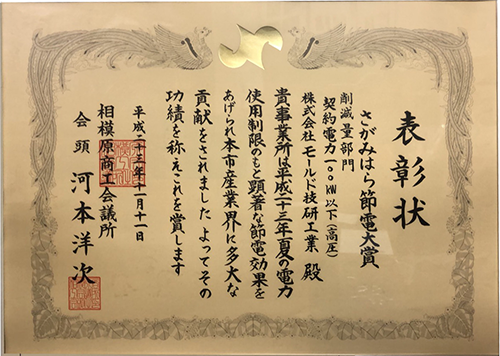 表彰状
さがみはら節電大賞
削減量部門
契約電力一〇〇kW以下（高圧）
株式会社 モールド技研工業 殿
貴事業所は平成二十三年夏の電力
使用制限のもと顕著な節電効果を
あげられ本市産業界に多大な
貢献をされました よってその
功績を称えこれを賞します
平成二十三年十一月十一日
相模原商工会議所
会頭 河本洋次